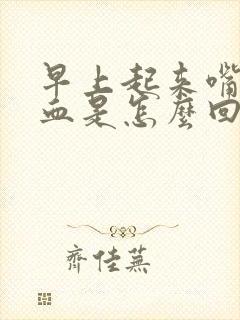 早上起来嘴
血是怎麼回
齊佳蕪